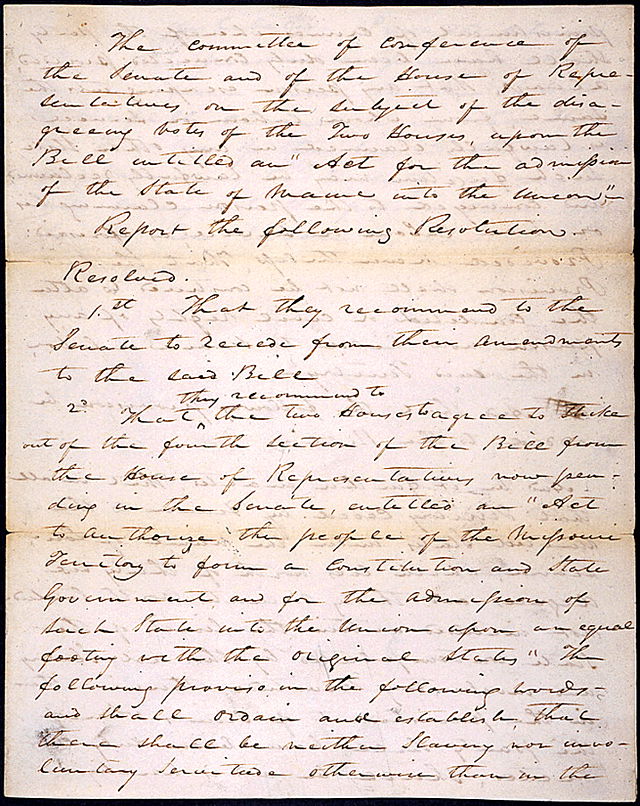 The committee of conference of
the Senate and of the House of Repre-
sentatives on the subject of the disa-
greeing votes of the Two Houses, upon the
Bill entitled an "Act for the admission
of the State of Maine into the Union"
Report the following Resolution
Resolved.
1st That they recommend to the
Senate to recede from their amendments
to the said Bill
they recommend to
2d That ^ the two Houses to agree to strike
out of the fourth section of the Bill from
the House of Representatives now pen-
ding in the Senate, entitled an "Act
to authorize the people of the Missouri
Territory to form a Constitution and State
Government and for the admission of
such State into the Union upon an equal
footing with the original States" The
following proviso in the following words-
and shall ordain and establish, that
there shall be neither Slavery nor invo-
luntary Servitude otherwise than in the